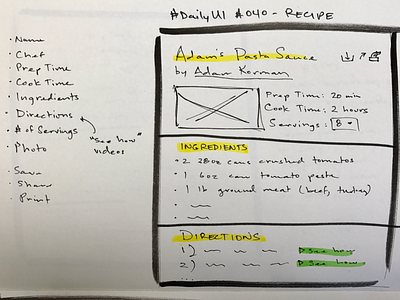 #DailyUI #040 - RECIPE
· Name
· Chef
· Prep Time
· Cook Time
· Ingredients
· Directions
· # of Servings
· Photo
"See how"
videos
· Save
· Share
· Print
Adam's Pasta Sauce
by Adam Korman
Prep Time: 20 min
Cook Time: 2 hours
Servings: 8
INGREDIENTS
· 2 28oz cans crushed tomatos
· 1 6oz can tomato paste
· 1 lb ground meat (beef, turkey)
DIRECTIONS
1) See how
2) See how